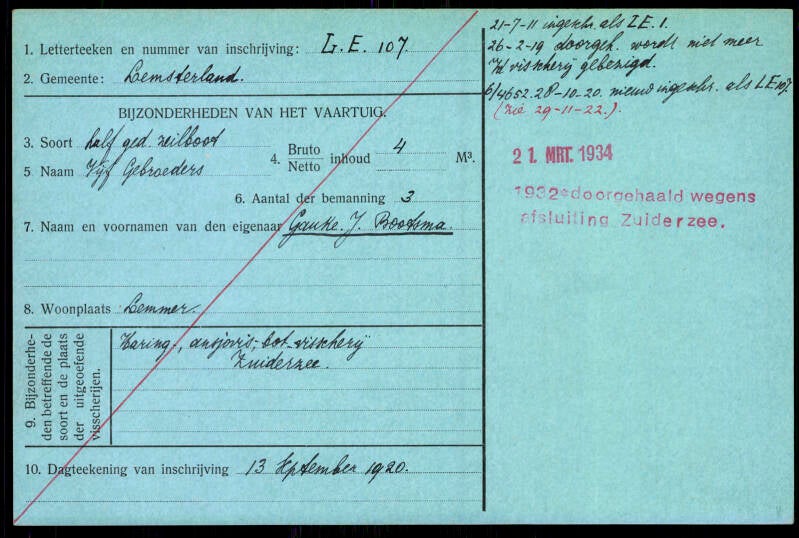 1. Letterteeken en nummer van inschrijving: L.E. 107.
2. Gemeente: Lemsterland.
BIJZONDERHEDEN VAN HET VAARTUIG.
3. Soort half ged. zeilboot
4. Bruto / Netto inhoud 4 M³.
5. Naam Vijf Gebroeders
6. Aantal der bemanning 3
7. Naam en voornamen van den eigenaar Gauke. J. Bootsma.
8. Woonplaats Lemmer.
9. Bijzonderhe-
den betreffende de
soort en de plaats
der uitgeoefende
visscherijen.
Haring-, ansjovis-, bot-visscherij
Zuiderzee.
10. Dagteekening van inschrijving 13 September 1920.
21-7-11 ingeschr. als LE. 1.
26-2-19 doorgeh. wordt niet meer
visscherij gebezigd.
28-10-20. nieuw ingeschr. als LE 107
(Zie 29-11-22.).
21. MRT. 1934
1932 doorgehaald wegens
afsluiting Zuiderzee.